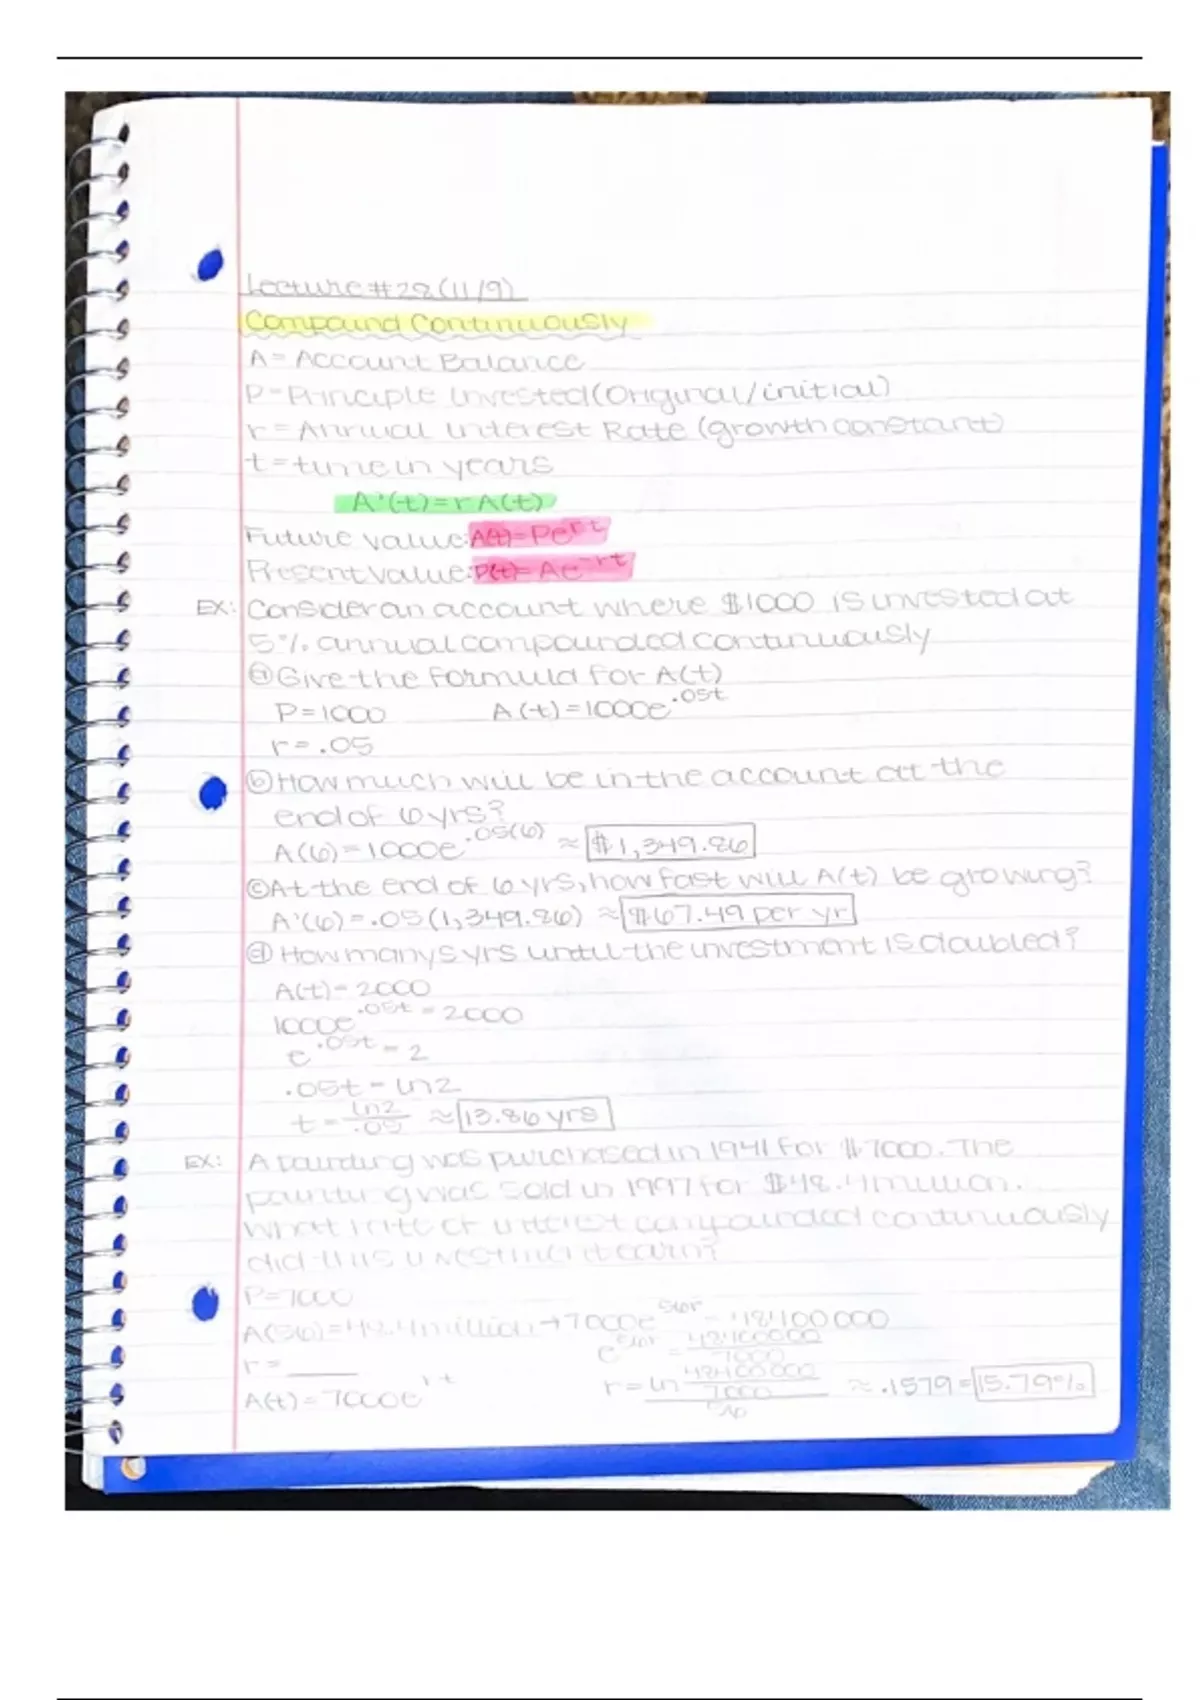 Lecture #28 (11/9)
Compound Continuously
A = Account Balance
P = Principle Invested (Original/initial)
r = Annual Interest Rate (growth constant)
t = time in years
A'(t) = r A(t)
Future Value: A(t) = Pe^rt
Present Value: P(t) = Ae^-rt
EX: Consider an account where $1000 is invested at
5% annual compounded continuously
ⓐ Give the formula for A(t)
P = 1000 A(t) = 1000e^.05t
r = .05
ⓑ How much will be in the account at the
end of 6 yrs?
A(6) = 1000e^.05(6) ≈ $1,349.86
ⓒ At the end of 6 yrs, how fast will A(t) be growing?
A'(6) = .05(1,349.86) ≈ $67.49 per yr
ⓓ How manys yrs until the investment is doubled?
A(t) = 2000
1000e^.05t = 2000
e^.05t = 2
.05t = ln2
t = ln2/.05 ≈ 13.86 yrs
EX: A painting was purchased in 1941 for $7000. The
painting was sold in 1997 for $48.4 million.
What rate of interest compounded continuously
did this investment earn?
P = 7000
A(56) = 48.4 million → 7000e^56r = 48400000
e^56r = 48400000/7000
r = ___
r = ln 48400000/7000 / 56 ≈ .1579 = 15.79%
A(t) = 7000e^rt